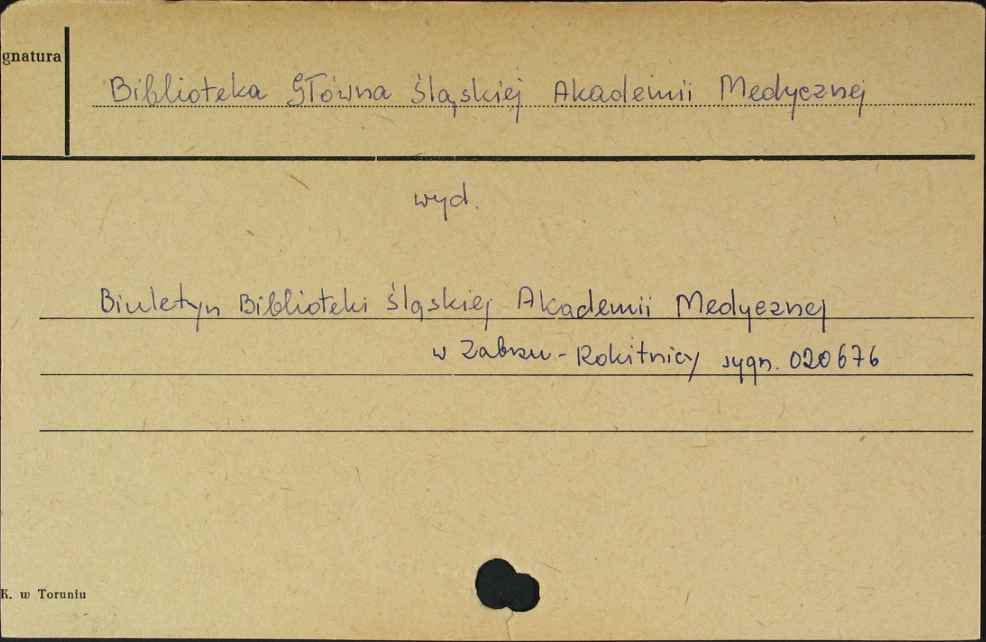 gnatura
Biblioteka Główna Śląskiej Akademii Medycznej
wyd.
Biuletyn Biblioteki Śląskiej Akademii Medycznej
w Zabrzu - Rokitnicy sygn. 020676
K. w Toruniu